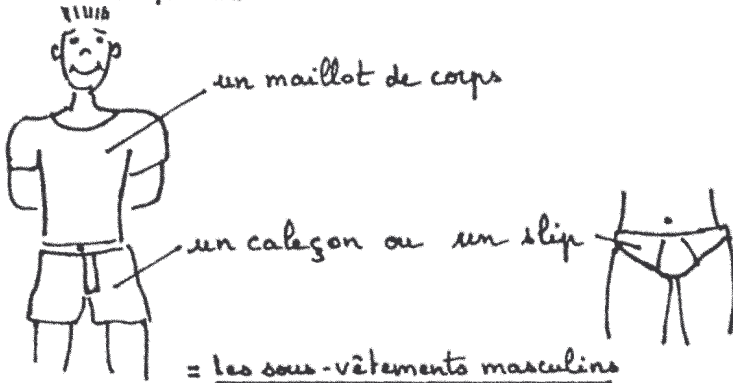 un maillot de corps
un caleçon ou un slip
= les sous-vêtements masculins